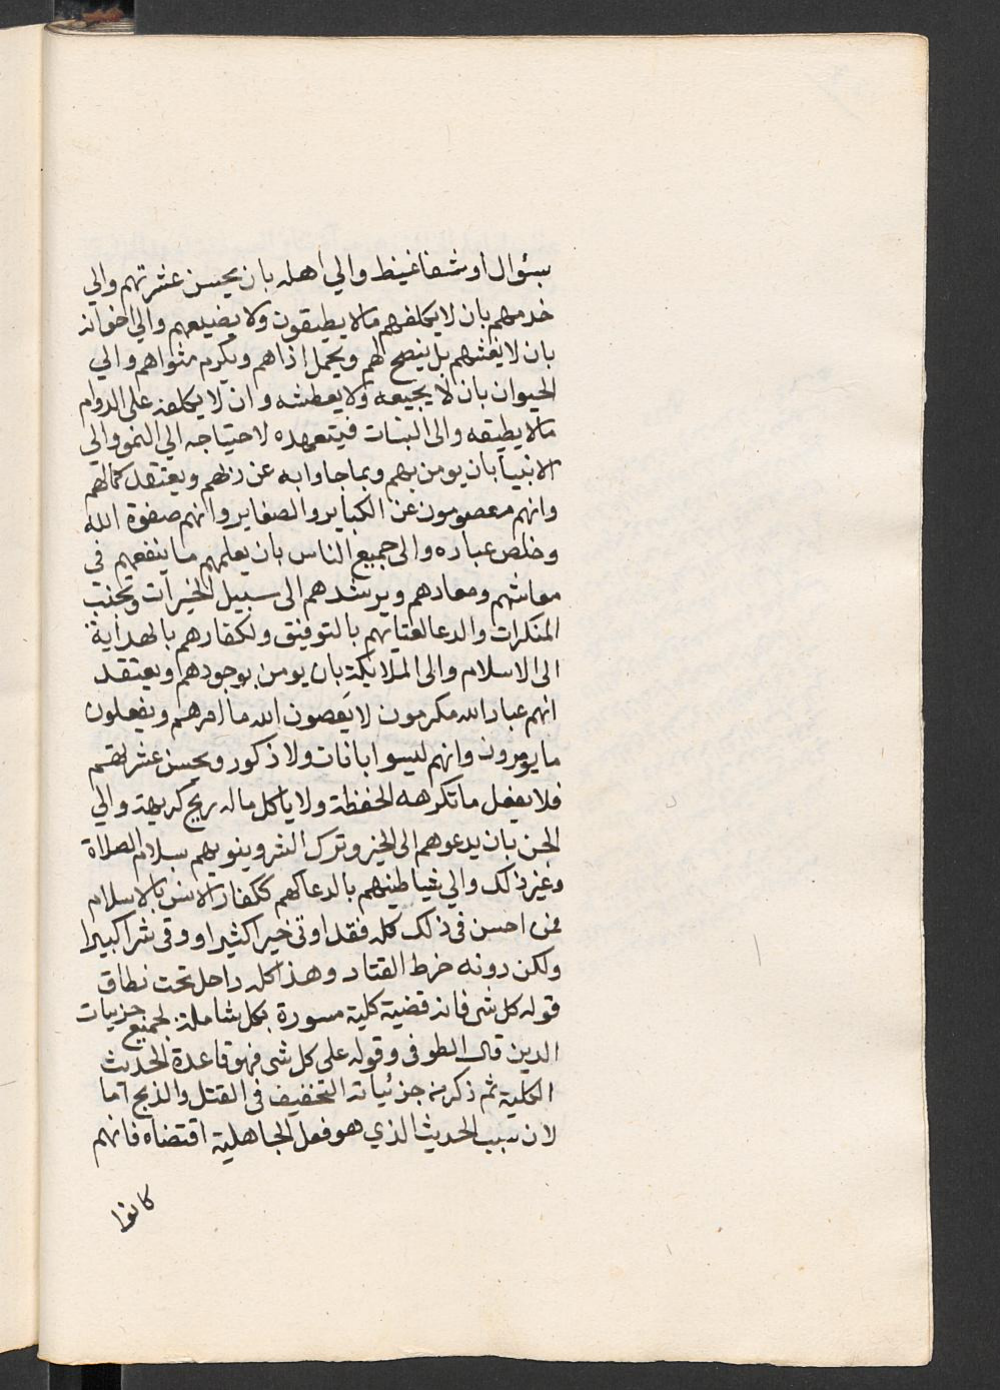 بسئوال او شفا غيظ والي اهله بان يحسن عشرتهم والي
خدمهم بان لا يكلفهم مالا يطيقون ولا يضيعهم والي اخوانه
بان لا يغشهم بل ينصح لهم ويحمل اذاهم ويكرم مثواهم والي
الحيوان بان لا يجيعه ولا يعطشه وان لا يكلفه على الدوام
مالا يطيقه والى النبات فيتعهده لاحتياجه الي النمو والي
الانبيا بان يومن بهم وبما جاوا به عن ربهم ويعتقد كمالهم
وانهم معصومون عن الكباير والصغاير وانهم صفوة الله
وخلص عباده والى جميع الناس بان يعلمهم ما ينفعهم في
معاشهم ومعادهم ويرشدهم الى سبيل الخيرات وتجنب
المنكرات والدعا لعتاتهم بالتوفيق ولكفارهم بالهداية
الى الاسلام والى الملايكة بان يومن بوجودهم ويعتقد
انهم عباد الله مكرمون لا يعصون الله ما امرهم ويفعلون
ما يومرون وانهم ليسوا باناث ولا ذكور ويحسن عشرتهم
فلا يفعل ما تكرهه الحفظة ولا ياكل ماله ريح كريهة والي
الجن بان يدعوهم الى الخير وترك الشر وينويهم بسلام الصلاة
وغير ذلك والي شياطينهم بالدعا لهم ككفار الانس بالاسلام
فمن احسن في ذلك كله فقد اوتى خيرا كثيرا ووقى شرا كبيرا
ولكن دونه خرط القتاد وهذا كله داخل تحت نطاق
قوله كل شي فانه قضية كلية مسورة بكل شاملة لجميع جزييات
الدين قال الطوفى وقوله على كل شى فهو قاعدة الحديث
الكلية ثم ذكر من جزئياته التخفيف في القتل والذبح اما
لان سبب الحديث الذي هو فعل الجاهلية اقتضاه فانهم
كانوا